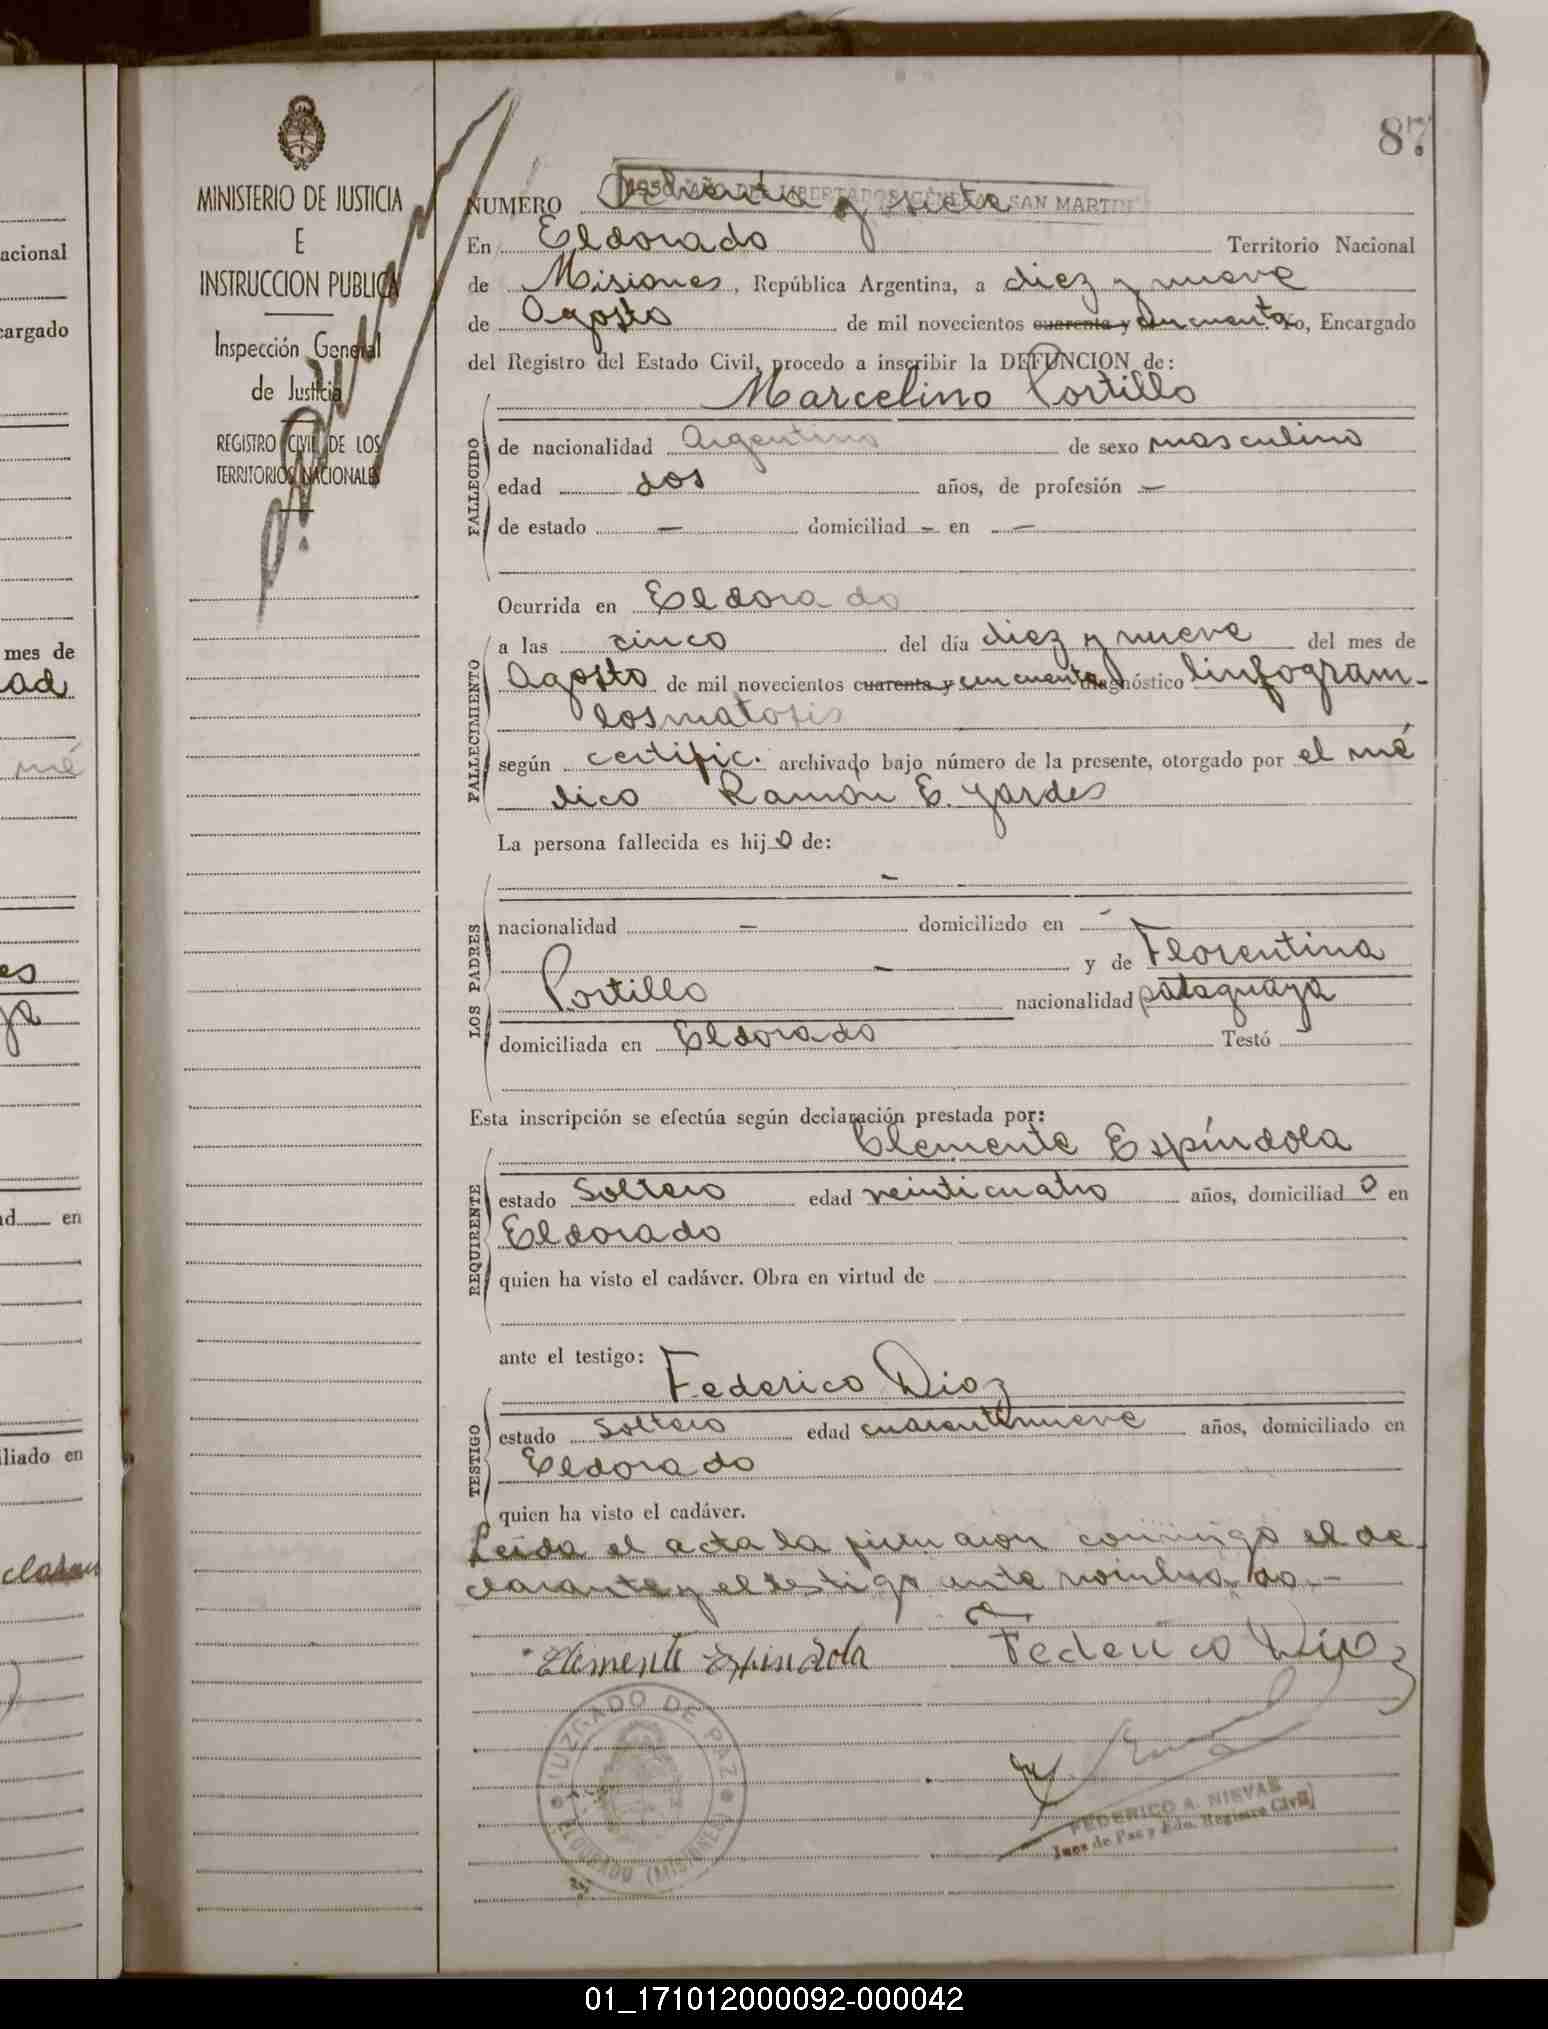 acional
cargado
mes de
ad
mé
es
ya
d en
iliado en
claran
MINISTERIO DE JUSTICIA
E
INSTRUCCION PUBLICA
Inspección General
de Justicia
REGISTRO CIVIL DE LOS
TERRITORIOS NACIONALES
87
1950 AÑO DEL LIBERTADOR GENERAL SAN MARTIN
NUMERO Ochenta y siete
En Eldorado Territorio Nacional
de Misiones, República Argentina, a diez y nueve
de Agosto de mil novecientos cuarenta y cincuenta Yo, Encargado
del Registro del Estado Civil, procedo a inscribir la DEFUNCION de:
Marcelino Portillo
FALLECIDO
de nacionalidad Argentino de sexo masculino
edad dos años, de profesión —
de estado — domiciliad - en —
Ocurrida en Eldorado
FALLECIMIENTO
a las cinco del día diez y nueve del mes de
Agosto de mil novecientos cuarenta y cincuenta diagnóstico linfogram-
losmatosis
según certific. archivado bajo número de la presente, otorgado por el mé
dico Ramón E. Yardes
La persona fallecida es hijo de:
LOS PADRES
-
nacionalidad — domiciliado en -
- y de Florentina
Portillo nacionalidad paraguaya
domiciliada en Eldorado Testó
Esta inscripción se efectúa según declaración prestada por:
Clemente Espíndola
REQUIRENTE
estado soltero edad veinticuatro años, domiciliado en
Eldorado
quien ha visto el cadáver. Obra en virtud de
ante el testigo:
Federico Diaz
TESTIGO
estado soltero edad cuarentinueve años, domiciliado en
Eldorado
quien ha visto el cadáver.
Leida el acta la firman conmigo el de
clarante y el testigo ante nombrado.-
Clemente Espindola Federico Diaz
JUZGADO DE PAZ
ELDORADO (MISIONES)
FEDERICO A. NIEVAS
Juez de Paz y Edo. Registro Civil
01_171012000092-000042